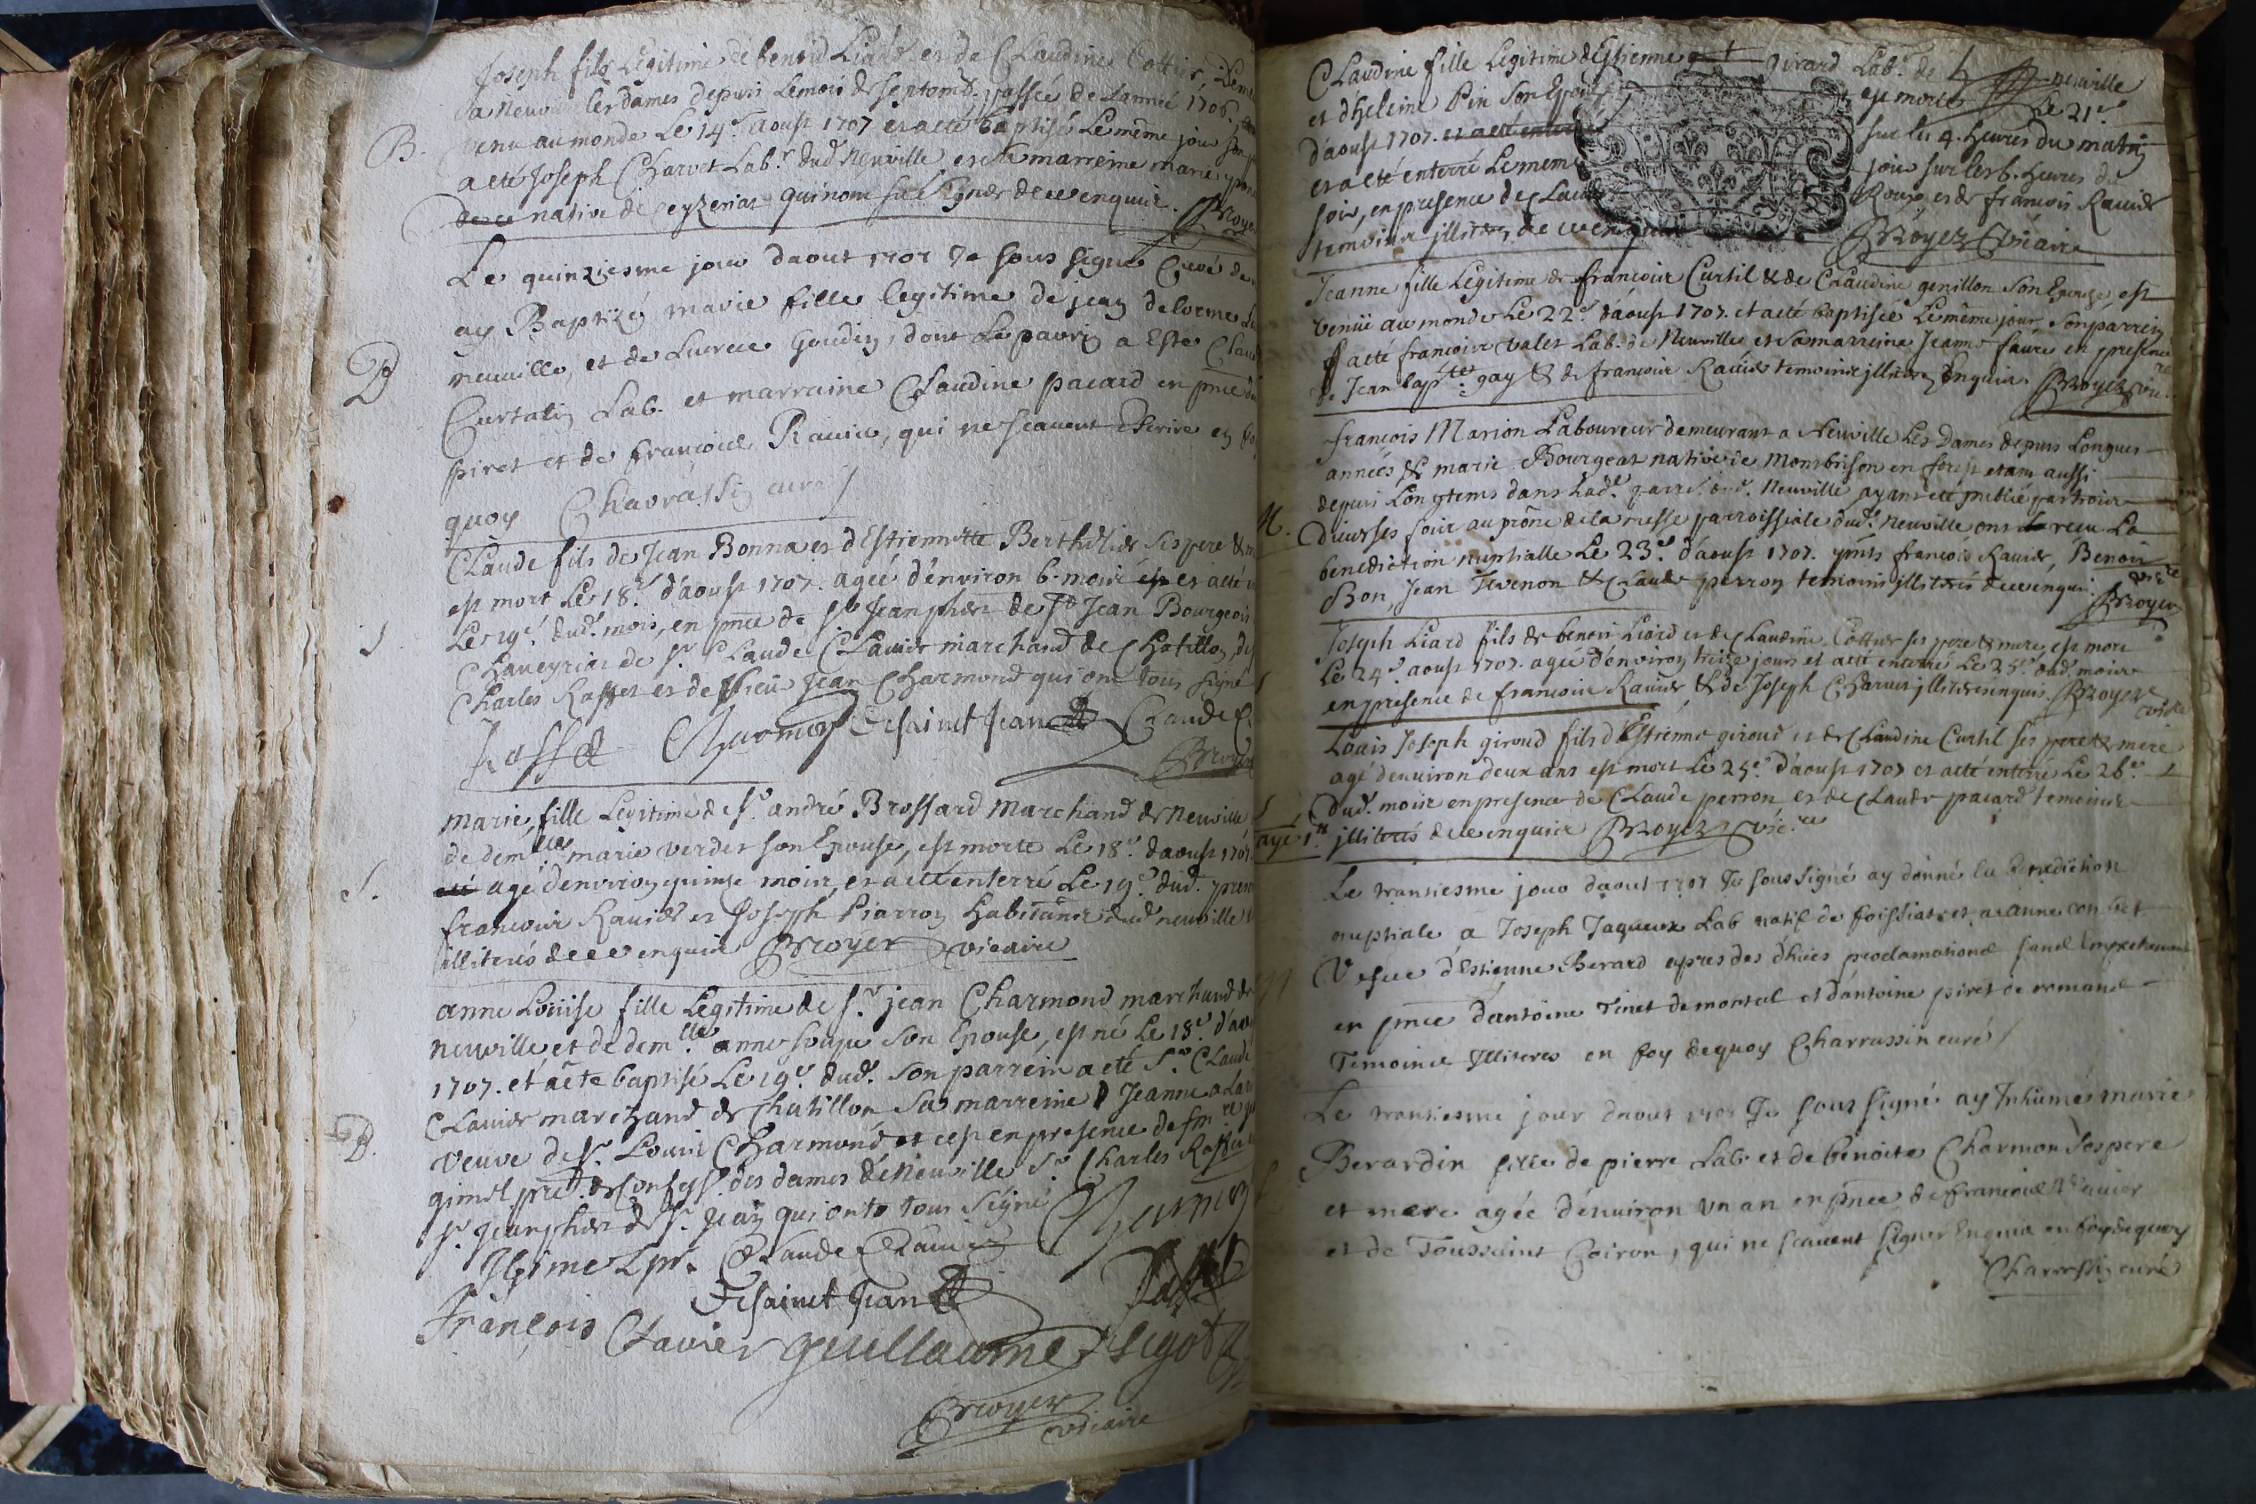 Joseph fils Legitime de benoid Liard et de Claudine Cottier, deme
a Neuville les dames depuis Lemois de septemb. passée de Lannée 1706.
B. venu au monde Le 14e aoust 1707 et a eté baptisé Le même jour son p
a eté Joseph Charvet Lab.r dud. Neuville et sa marreine marie
native de ceyzeriat qui nont scu signer de ce enquis. Broyer
Le quinziesme jour daout 1707 Je sous signé Curé de
ay Baptizé marie fille legitime de jean delorme La
B neuville, et de Lucrece Goudin, dont Le parrin a Esté Claud
Curtalin Lab. et marraine Claudine pacard en pnce de
piret et de francois Ravier, qui ne scavent Escrire en foy
quoy Charassin curé
Claude fils de Jean Bonna et d'Estiennette Berthelier ses pere & m
est mort Le 18.e d'aoust 1707. ageé d'environ 6. mois et a eté
S Le 19.e dud. mois, en pnce de Sr Jean pher de St Jean Bourgeois
Chaneyria de Sr Claude Clavier marchand de Chatillon, de
Charles Rasset et de Sieu Jean Charmond qui ont tous signé
Rasset Charmond Desainct Jean Claude C
Broyer
Marie, fille Legitime de Sr andré Brossard Marchand de Neuville
de dem.lle marie verdet son Epouse, est morte Le 18.e d'aoust 1707.
S. agé denviron quinse mois, et a eté enterré Le 19.e dud. presen
francois Ravier et Joseph Piarron habitans dud. neuville
illiterés de ce enquis Broyer vicaire
anne Louise fille Legitime de Sr jean Charmond marchand de
neuville et de dem.lle anne soupe son Epouse, est né Le 18.e d'aou
1707. et a eté baptisé Le 19.e dud. son parrein a eté Sr Claude
Clavier marchand de Chatillon sa marreine Jeanne
B. veuve de Sr Louis Charmond et ce en presence de
gimel pre. & confess. des dames de Neuville Sr Charles Rasset
Sr Jean pher de St Jean qui ont tous signé Charmond
Gimel pr. Claude Clavier
Desainct Jean Rasset
François Clavier guillaume sigot
Broyer
vicaire
Claudine fille Legitime d'Estienne girard Lab.r de neuville
et d'heleine Pin son Epouse est morte Le 21.e
d'aoust 1707. et a eté enter sur les 4. heures du matin
et a eté enterré Le meme jour sur les 6. heures du
soir, en presence de Claude Roux et de francois Ravier
temoins illiterés de ce enquis Broyer vicaire
Jeanne fille Legitime de francois Curtil & de Claudine genillon son Epouse est
venüe au monde Le 22.e d'aoust 1707. et a eté baptisée Le même jour, son parrein
a eté francois valet Lab. de Neuville et sa marreine Jeanne faure en presence
de Jean bap.te gay & de francois Ravier temoins illiterés enquis. Broyer vic.
françois Marion Laboureur demeurant a Neuville Les Dames depuis Longues
années & marie Bourgeat native de Montbrison en forest etant aussi
depuis Longtems dans Lad.e parr. dud. Neuville ayant eté publié par trois
M. diverses fois au prône de la messe parroissiale dud. Neuville ont receu La
benediction nuptialle Le 23.e d'aoust 1707. pnts francois Ravier, Benoit
Bon, Jean Thevenon & Claude perron temoins illiterés de ce enquis. Broyer vicre
Joseph Liard fils de benoit Liard et de Claudine Cottier ses pere & mere, est mort
Le 24.e aoust 1707. ageé d'environ treize jours et a eté enterré Le 25.e dud. mois
en presence de francois Ravier & de Joseph Charvet illiterés enquis. Broyer vicre
Louis Joseph giroud fils d'Estienne giroud et de Claudine Curtil ses pere & mere
agé denviron deux ans est mort Le 25.e d'aoust 1707 et a eté enterré Le 26.e
S dud. mois en presence de Claude perron et de Claude pacard temoins
illiterés de ce enquis Broyer vic.re
Le trantiesme jour daout 1707 Je sous signé ay donné la Benediction
nuptiale a Joseph Jaqueux Lab natif de foissiat et a anne
vefve d'Estienne Berard apres des dhues proclamations sans Empechement
en pnce dantoine Tinet de montal et dantoine piret de romans
Temoins Illiteres en foy dequoy Charrassin curé
Le trantiesme jour daout 1707 Je sous signé ay Inhumé marie
Berardin fille de pierre Lab. et de benoite Charmon ses pere
et mere agée d'environ un an en pnce de francois Ravier
et de Toussaint Coiron, qui ne scavent signer Enquis en foy dequoy
Charassin curé